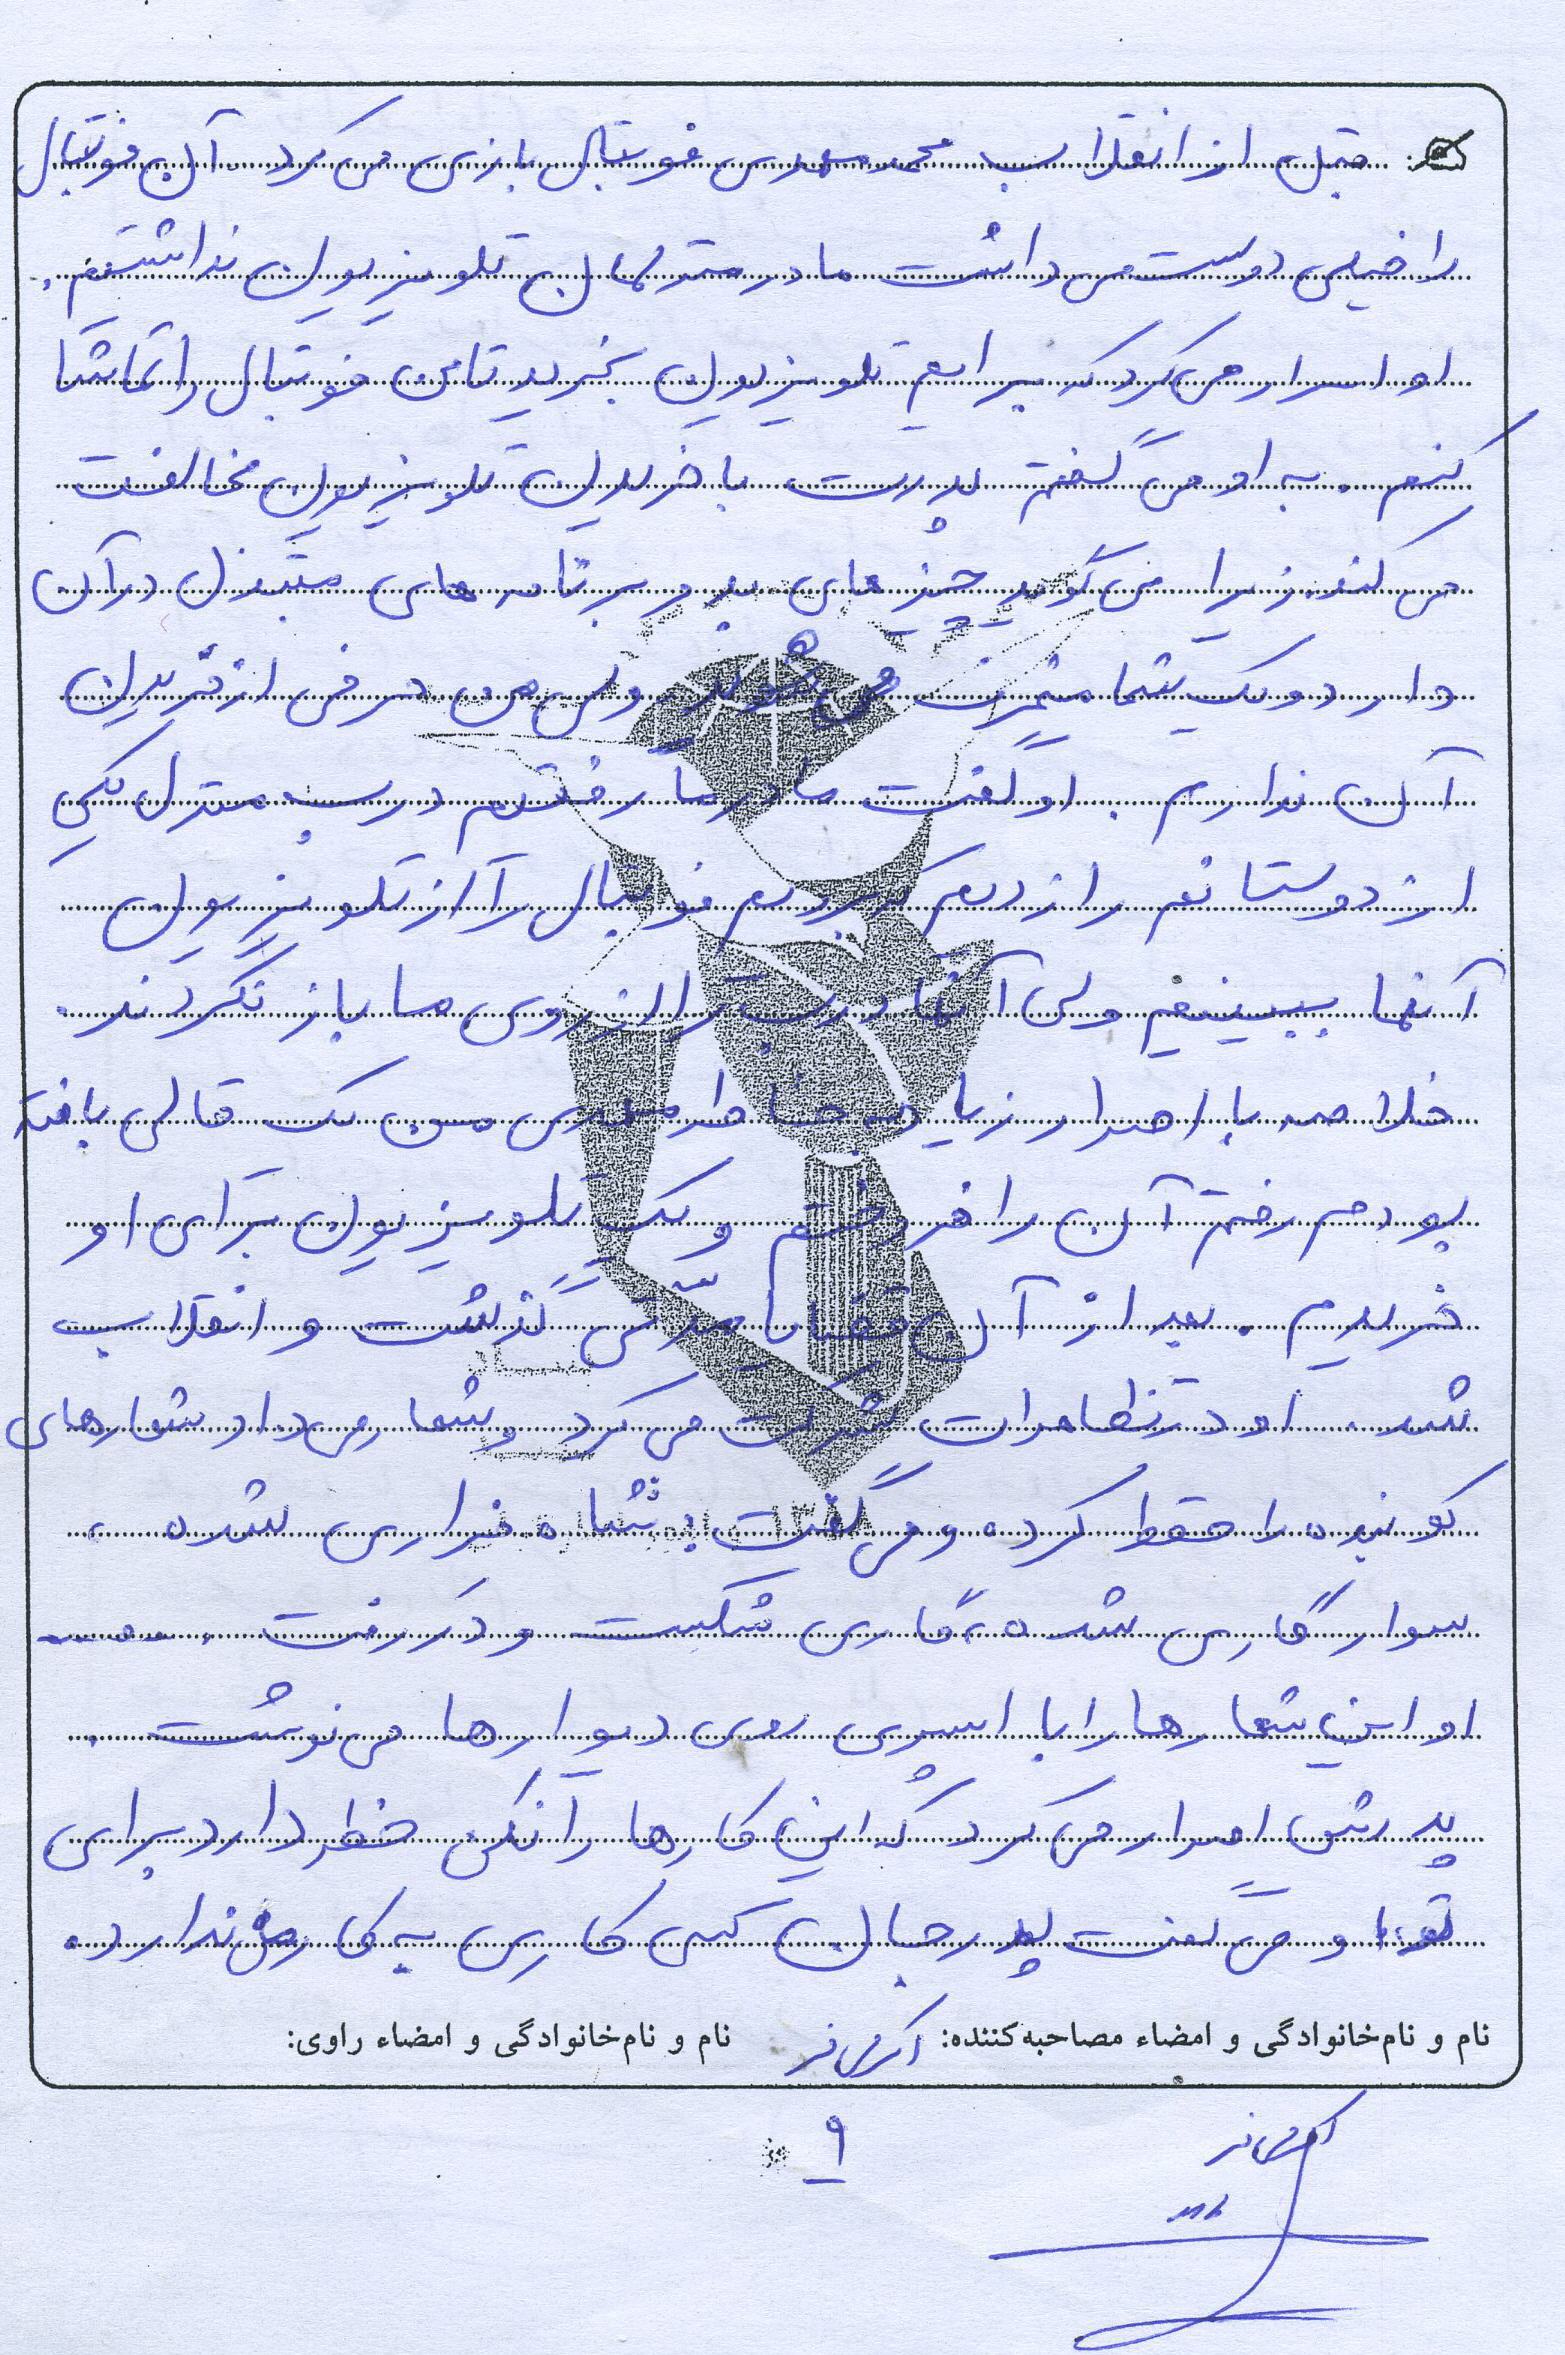 قبل از انقلاب محمد مهدی فوتبال بازی می کرد. آن فوتبال
را خیلی دوست می داشت ما در منزلمان تلویزیون نداشتیم.
او اسرار می کرد که برایم تلویزیون بخرید تا من فوتبال را تماشا
کنم. به او می گفتم پدرت با خریدن تلویزیون مخالفت
می کند. زیرا می گوید چیزهای بد و برنامه های مبتذل در آن
دارد و شما می شوید ولی من حرفی از خریدن
آن ندارم. او گفت مادر ما رفتیم درب منزل یکی
از دوستانم را زدیم که برویم فوتبال را از تلویزیون
آنها ببینیم ولی آنها درب را از روی ما باز نکردند.
خلاصه با اصرار زیاد به خاطر مهدی من یک قالی بافته
بودم رفتم آن را فروختم و یک تلویزیون برای او
خریدم. بعد از آن قضایا مدّتی گذشت و انقلاب
شد. او در تظاهرات شرکت می کرد و شعار می داد شعارهای
کوبنده را حفظ کرده و می گفت: شاه فراری شده،
سوار گاری شده، گاری شکست و در رفت. ....
او این شعارها را با اسپری روی دیوارها می نوشت.
پدرش اصرار می کرد که این کارها را نکن خطر دارد برای
تو، و می گفت پدر جان کسی کاری به کار من ندارد.
نام و نام‌خانوادگی و امضاء مصاحبه‌کننده: نام و نام‌خانوادگی و امضاء راوی:
۹